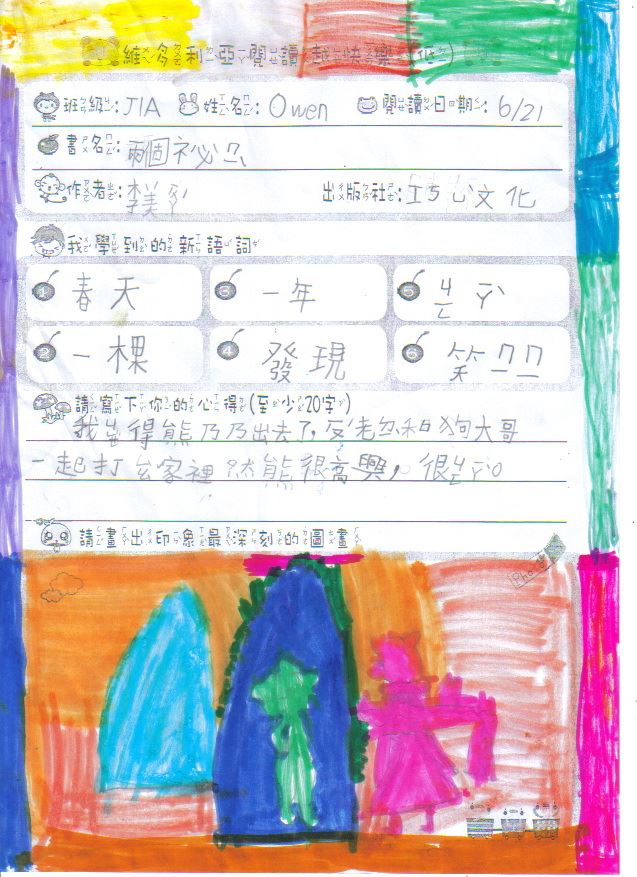 維多利亞閱讀 越快樂
班級: J1A 姓名: Owen 閱讀日期: 6/21
書名: 兩個祕ㄇ
作者: 李美 出版社: ㄍㄨ文化
我學到的新語詞
1 春天 3 一年 5
2 一棵 4 發現 6 笑ㄇㄇ
請寫下你的心得(至少20字)
我覺得熊乃乃出去了,和狗大哥
一起打 家裡 熊很高興,很
請畫出印象最深刻的圖畫
Photo